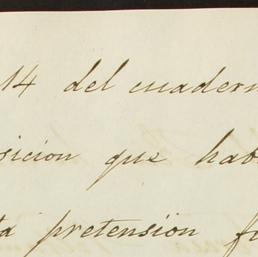 14 del cuadern
sicion que hab
ta pretension f